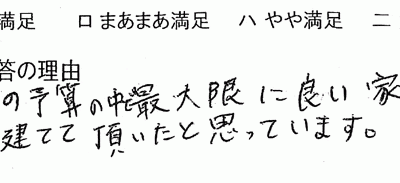 満足　ロ まあまあ満足　ハ やや満足　ニ
答の理由
の予算の中で最大限に良い家
建てて頂いたと思っています。